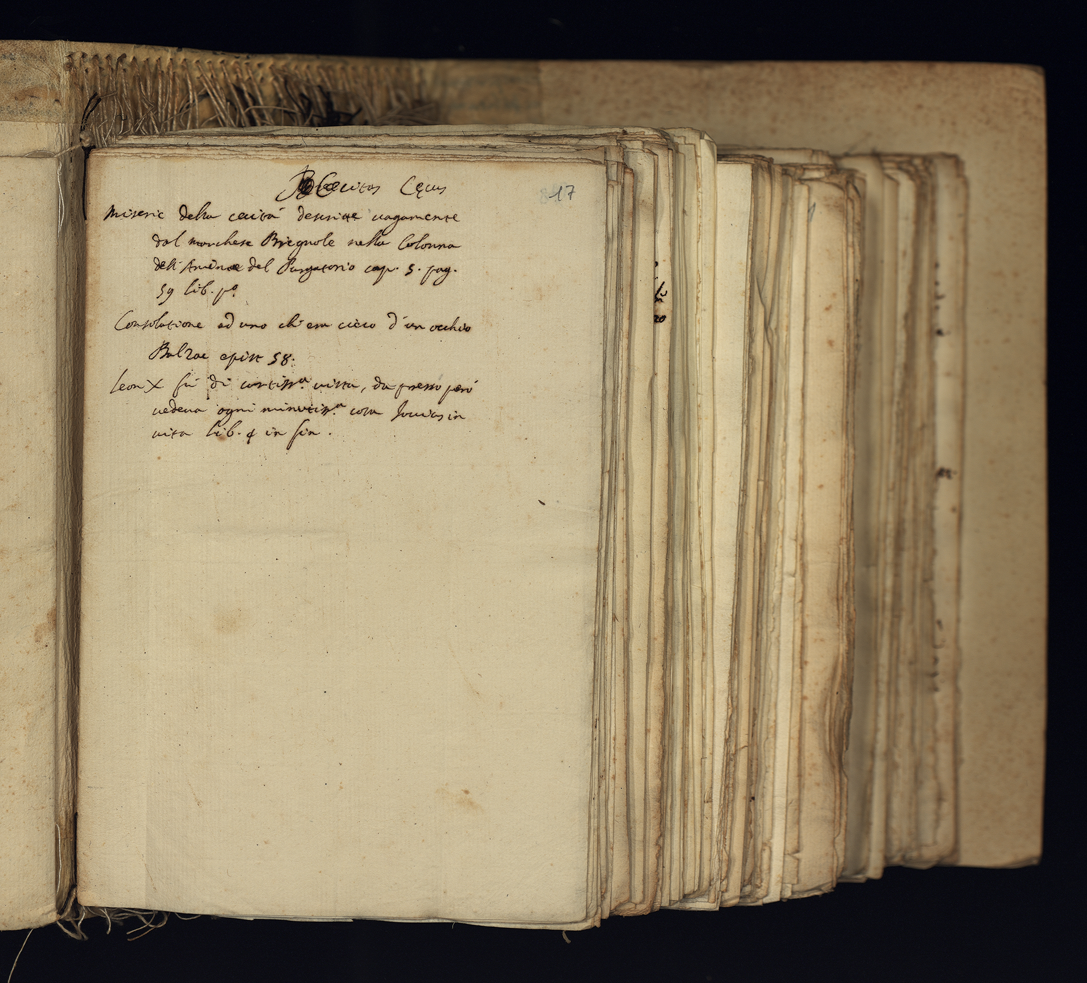 Cæcitas Cęcus
817
Miserie della cecità descritte vagamente
dal marchese Bregnole nella Colonna
dell'Anime del Purgatorio cap. 5. pag.
59 lib. pº
Consolatione ad uno ch'era cieco d'un occhio
Balzac epist 58.
Leon X fù di cortissª vista, da presso però
vedeva ogni minutissª cosa Jovius in
vita lib. 4 in fin.